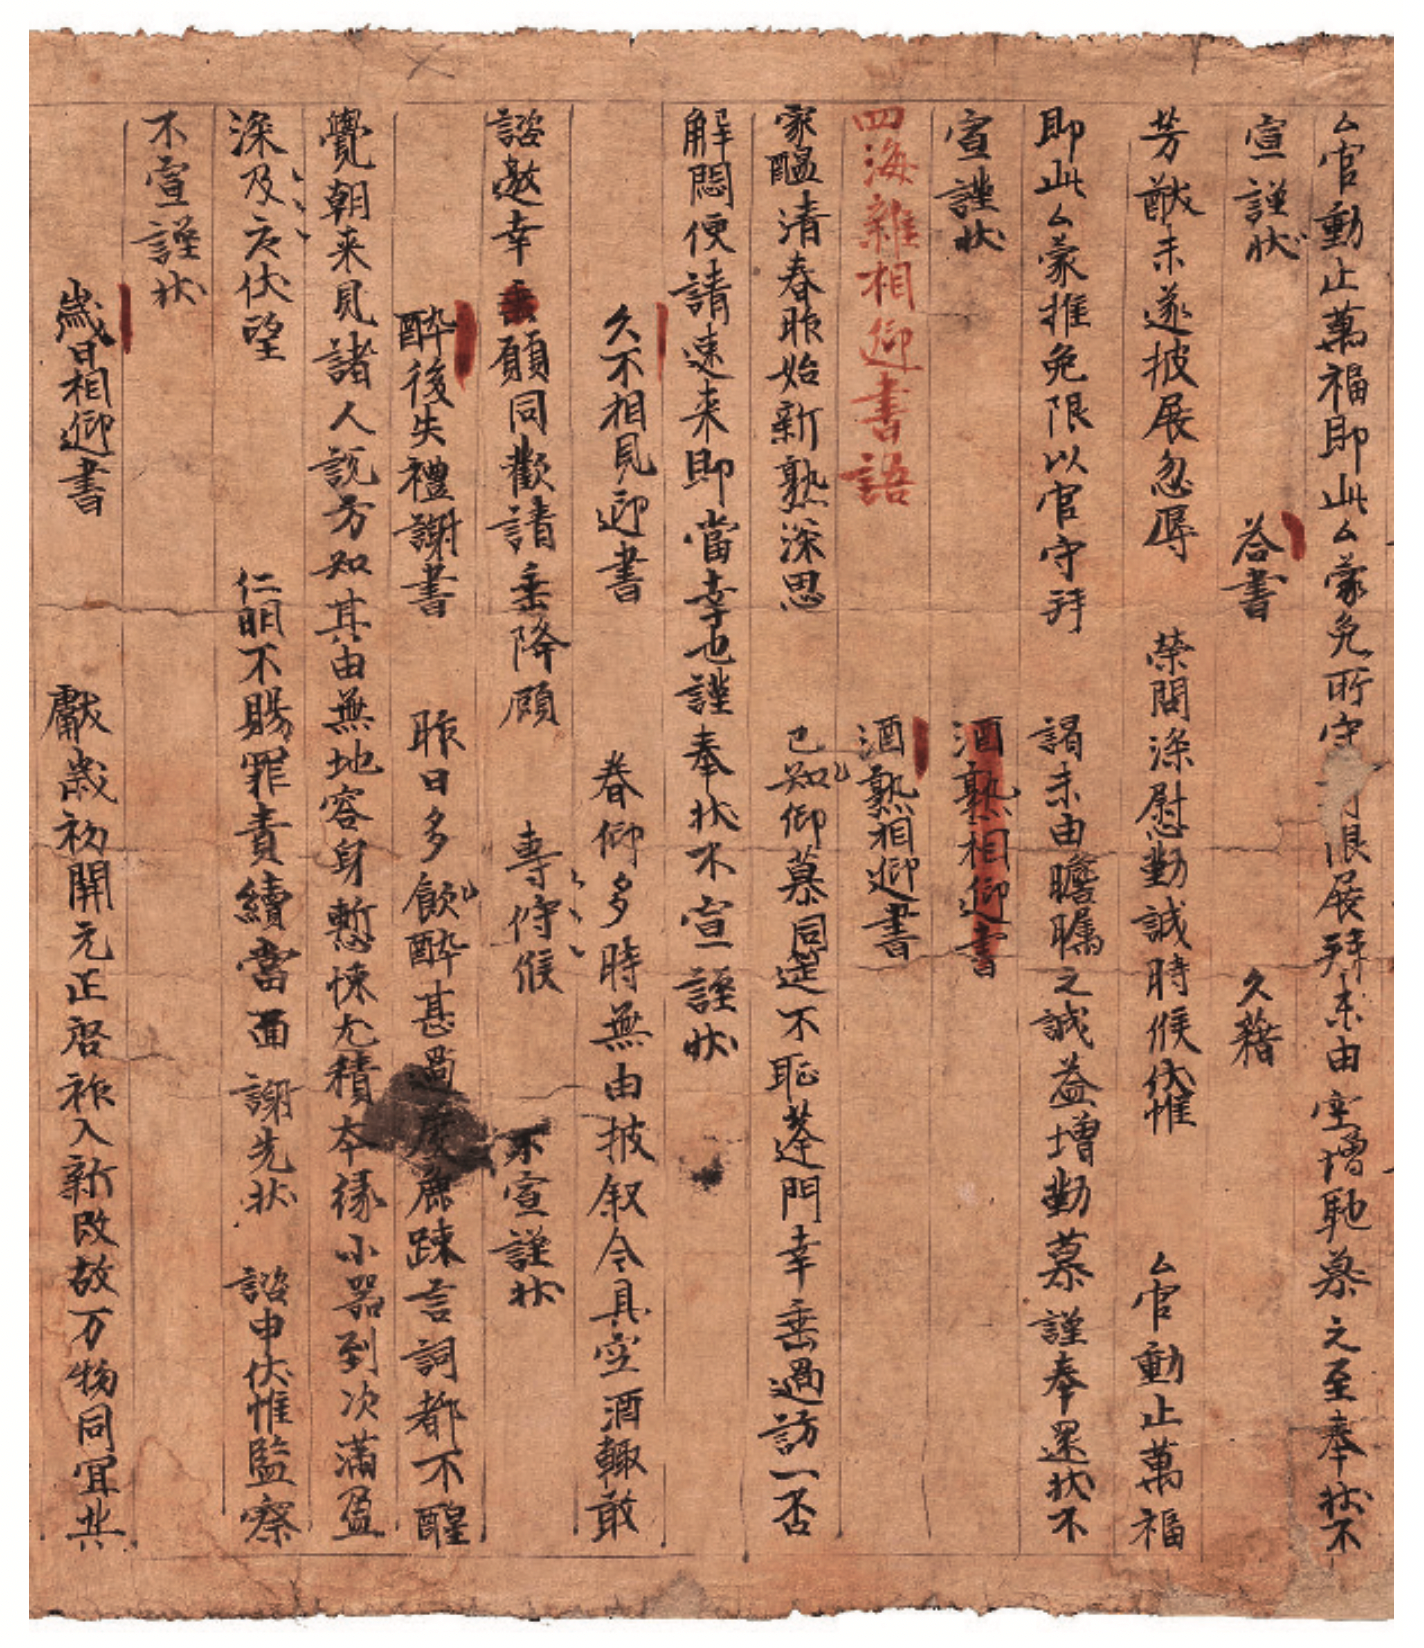 厶官動止萬福即此厶蒙免所守有限展拜未由空增馳慕之至奉狀不
宣謹狀 荅書 久藉
芳猷未遂披展忽辱 榮問深慰勤誠時候伏惟 厶官動止萬福
即此厶蒙推免限以官守拜 謁未由瞻矚之誠益增勤慕謹奉還狀不
宣謹狀 酒熟相迎書
四海雜相迎書語 酒熟相迎書
家醞清春昨始新熟深思 已知仰慕同筵不恥蓬門幸垂過訪一否
解悶便請速来即當幸也謹奉狀不宣謹狀
久不相見迎書 眷仰多時無由披叙今具空酒輙敢
諮邀幸垂願同歡請垂降顧 專佇候 不宣謹狀
醉後失禮謝書 昨日多飲醉甚過度麁踈言詞都不醒
覺朝来見諸人説方知其由無地容身慙悚尤積本緣小器到次滿盈
深及尤伏望 仁明不賜罪責續當面謝先狀 諮申伏惟監察
不宣謹狀
歲日相迎書 獻歲初開元正啓祚入新改故万物同宜共